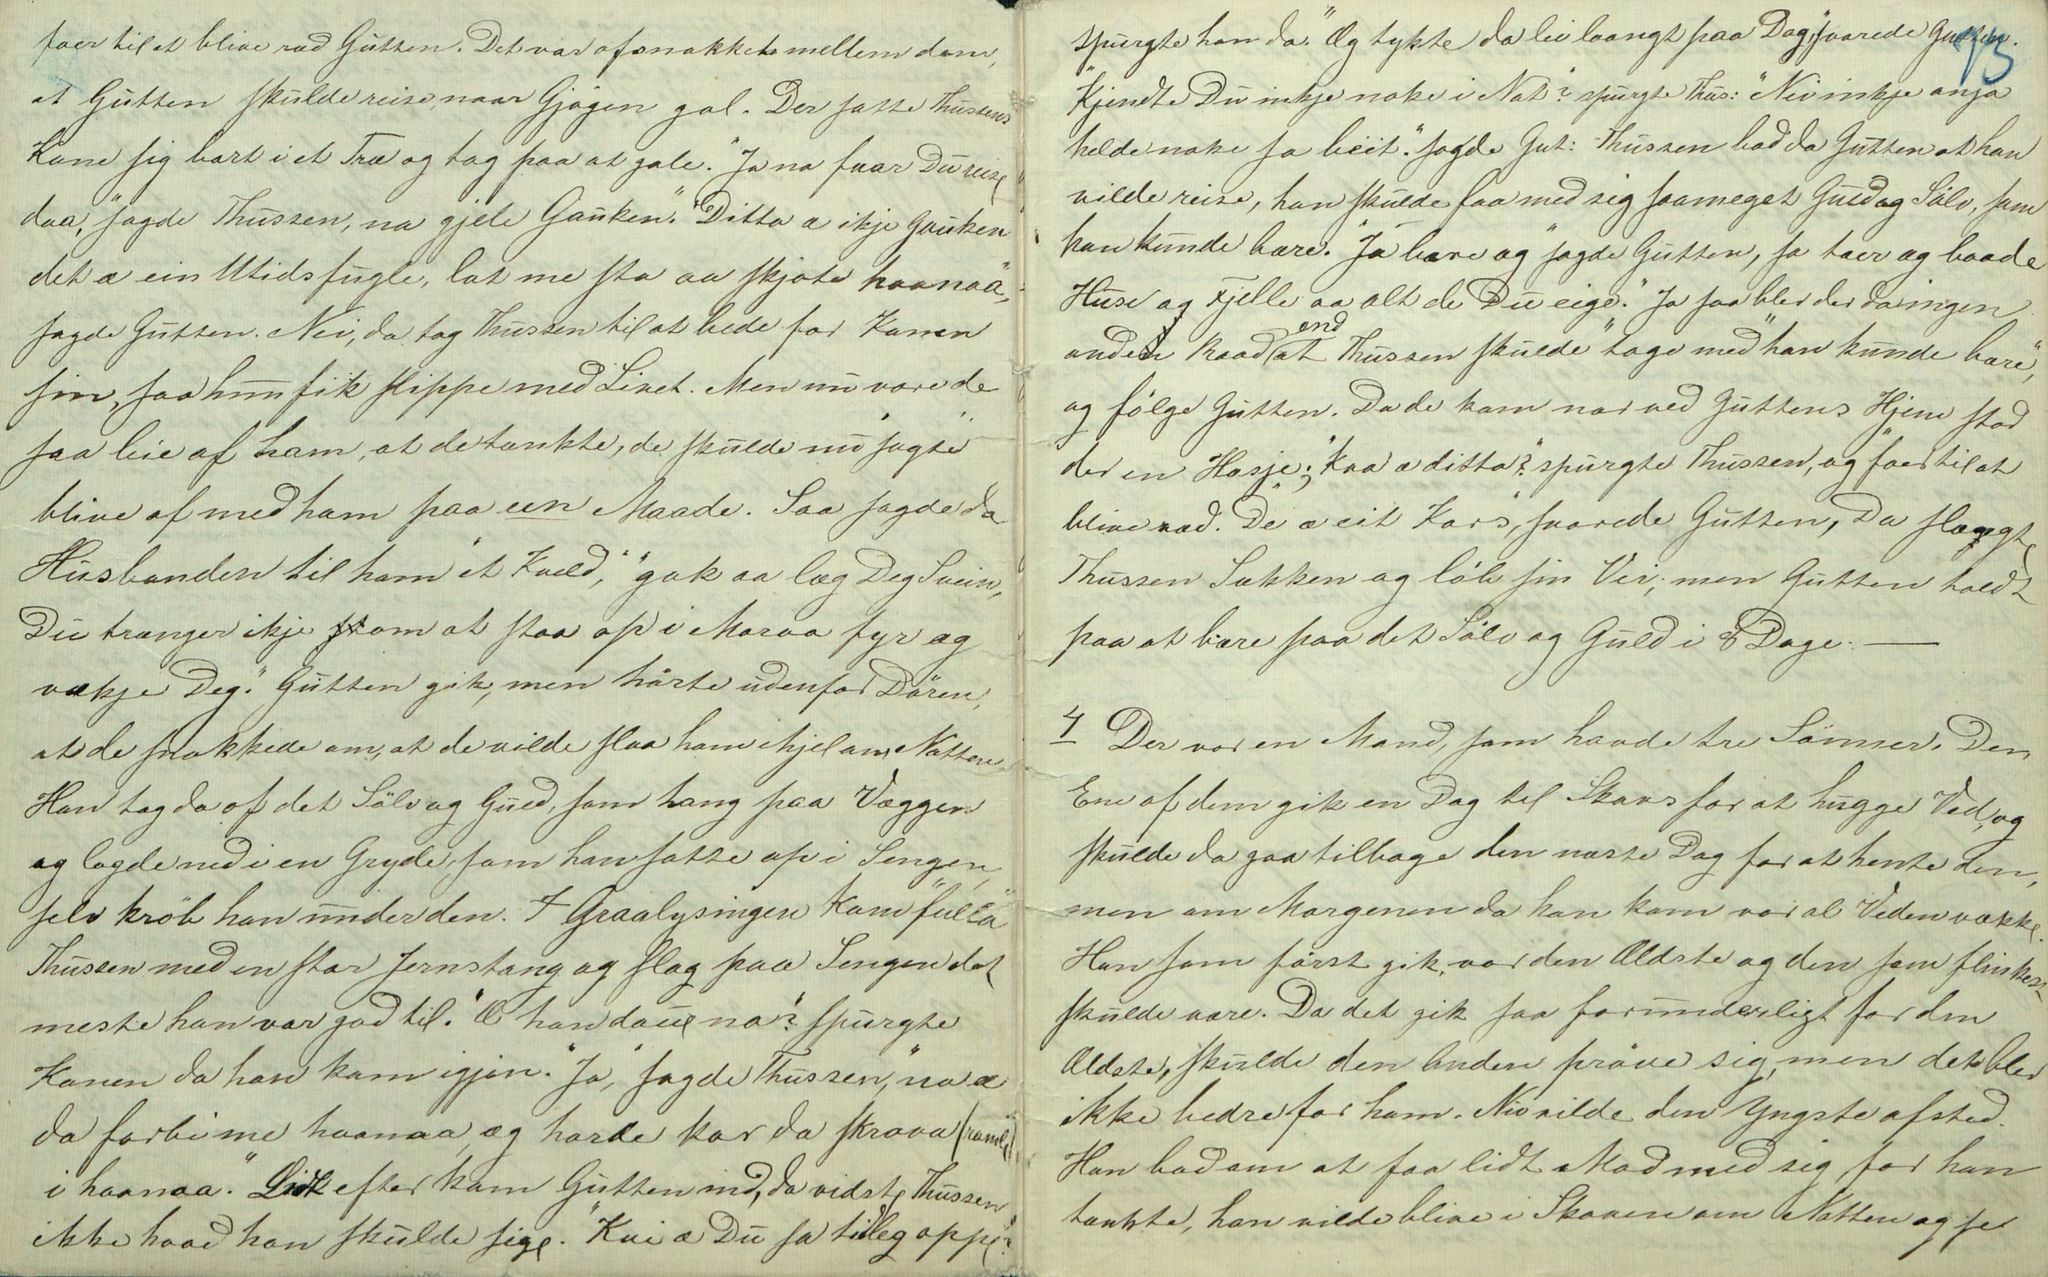 foer til at blive ræd Gutten. Det var afsnakket mellem dem,
at Gutten skulde reise naar Gjøgen gol. Der satte Thussens
Kone sig bort i et Træ og tog paa at gale. "Ja no faar Du reise
daa," sagde Thussen, no gjele Gauken". "Ditta æ ikje Gauken
det æ ein Utidsfugle, lat me sta aa skjote haanaa",
sagde Gutten. Nei, da tog Thussen til at bede for Konen
sin, saa hun fik slippe med Livet. Men nu vare de
saa leie af ham, at de tænkte, de skulde nu "sagte"
blive af med ham paa een Maade. Saa sagde da
Husbonden til ham et Kveld, "gak aa læg Deg Svein,
Du trænger ikje om at staa op i Moraa fyr æg
vækje Deg." Gutten gik, men hørte udenfor Døren,
at de snakkede om, at de vilde slaa ham ihjel om Natten.
Han tog da af det Sølv og Guld, som hang paa Væggen
og lagde ned i en Gryde, som han satte op i Sengen,
selv krøb han under den. I Graalysingen kom "fulla"
Thussen med en stor Jernstang og slog paa Sengen det
meste han var god til. "Æ han daue no"? spurgte
Konen da han kom igjen. "Ja," sagde Thussen, "no æ
da forbi me haanaa, æg horde kor da skrova (ramle)
i haanaa". Lidt efter kom Gutten ind, da vidste Thussen
ikke hvad han skulde sige. "Kvi æ Du so tidleg oppe"?
spurgte han da. "Æg tykte da lei laangt paa Dag," svarede Gutten.
"Kjendte Du inkje noke i Nat"? spurgte Thus: "Nei inkje anja
helde noke so beit". sagde Gut: Thussen bad da Gutten at han
vilde reise, han skulde faa med sig saameget Guld og Sølv, som
han kunde bære. "Ja bære æg" sagde Gutten, so tær æg baade
Huse og Fjelle aa alt de Du eige." Ja saa blev der da ingen
anden Raad end at Thussen skulde "tage med "han kunde bære",
og følge Gutten. Da de kom nær ved Guttens Hjem stod
der en Hæsje; "Kva æ ditta"? spurgte Thussen, og foer til at
blive ræd. "De æ eit Kors", svarede Gutten, Da slængte
Thussen Sækken og løb sin Vei; men Gutten holdt
paa at bære paa det Sølv og Guld i 8 Dage. —
4 Der var en Mand, som havde tre Sønner. Den
Ene af dem gik en Dag til Skovs for at hugge Ved, og
skulde da gaa tilbage den næste Dag for at hente den,
men om Morgenen da han kom var al Veden vække.
Han som først gik, var den Ældste og den som flinkest
skulde være. Da det gik saa forunderligt for den
Ældste, skulde den Anden prøve sig, men det blev
ikke bedre for ham. Nu vilde den Yngste afsted.
Han bad om at faa lidt Mad med sig, for han
tænkte, han vilde blive i Skoven om Natten og se